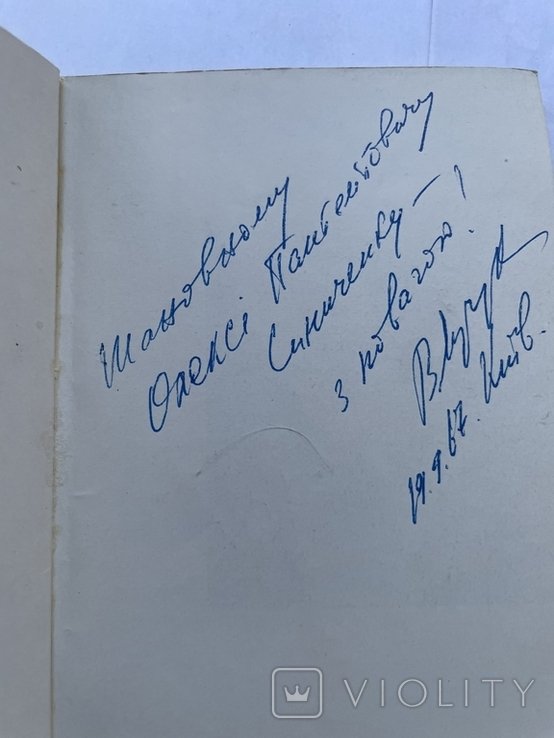 Шановному
Олексі Пантелійовичу
Синиченку –
з повагою!
19.9.67. Київ.
VIOLITY